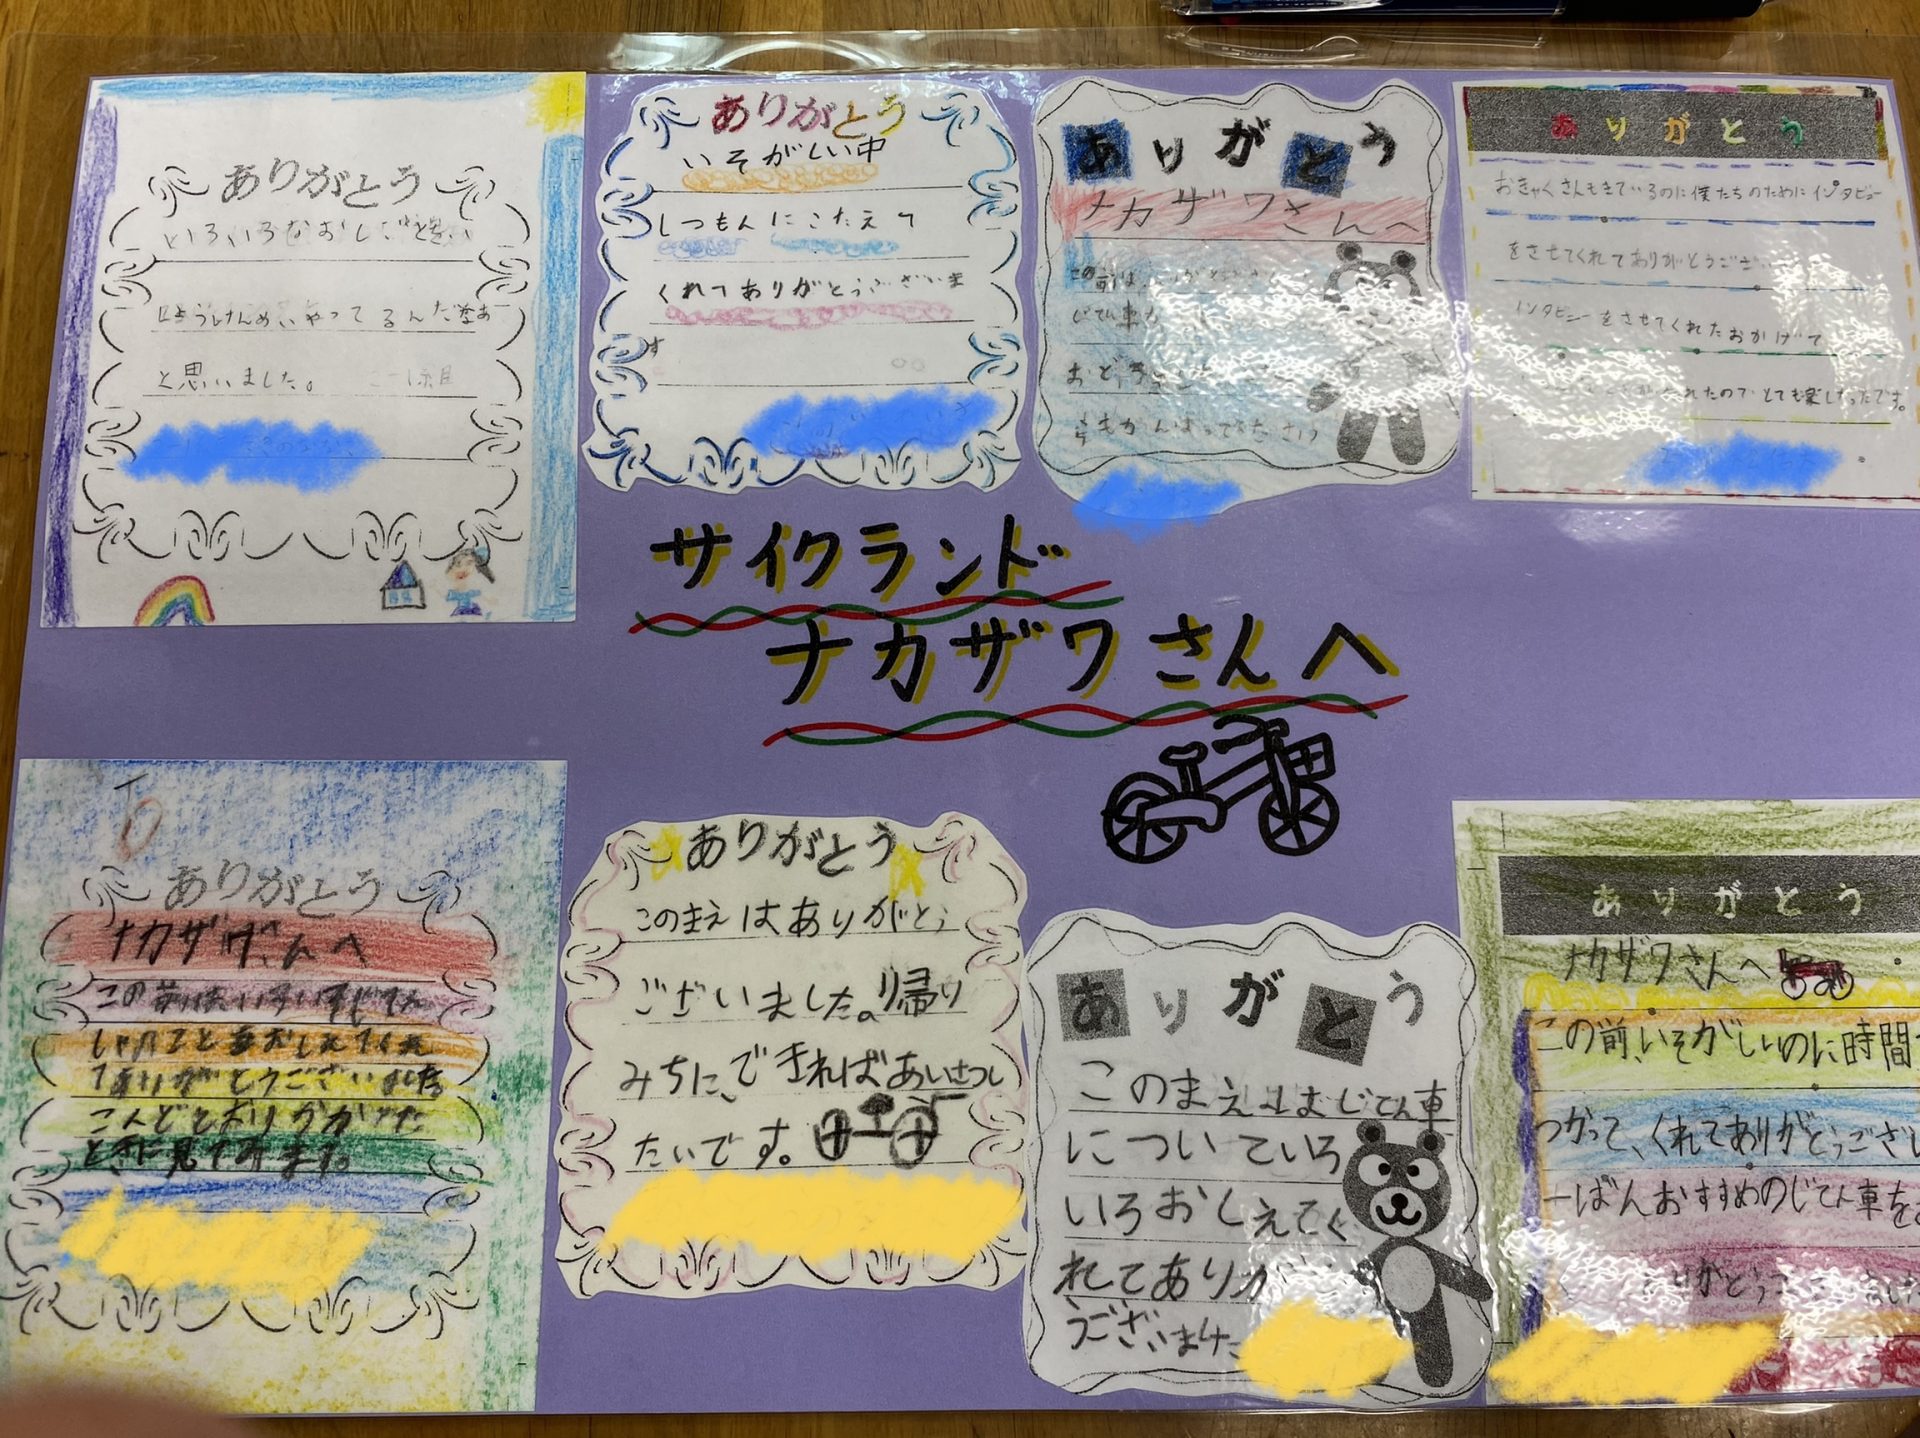 ありがとう
いろいろなおしごとを
やってるんだなあ
と思いました。
ありがとう
いそがしい中
しつもんにこたえて
くれてありがとうございま
す
ありがとう
ナカザワさんへ
この前は
おど
ありがとう
おきゃくさんもきているのに僕たちのためにインタビュー
をさせてくれてありがとうござい
インタビューをさせてくれたおかげで
れたのでとても楽しかったです。
サイクランド
ナカザワさんへ
To
ありがとう
ナカザワさんへ
この前はいろいろじてん
しゃのことをおしえてくれ
てありがとうございました
こんどとおりかかった
ときに見てみます。
ありがとう
このまえはありがとう
ございました。帰り
みちに、できればあいさつし
たいです。
ありがとう
このまえはじてん車
についていろ
いろおしえてく
れてありが
うございました
ありがとう
ナカザワさんへ
この前、いそがしいのに時間
つかって、くれてありがとうござい
一ばんおすすめのじてん車を
ありがとうござ